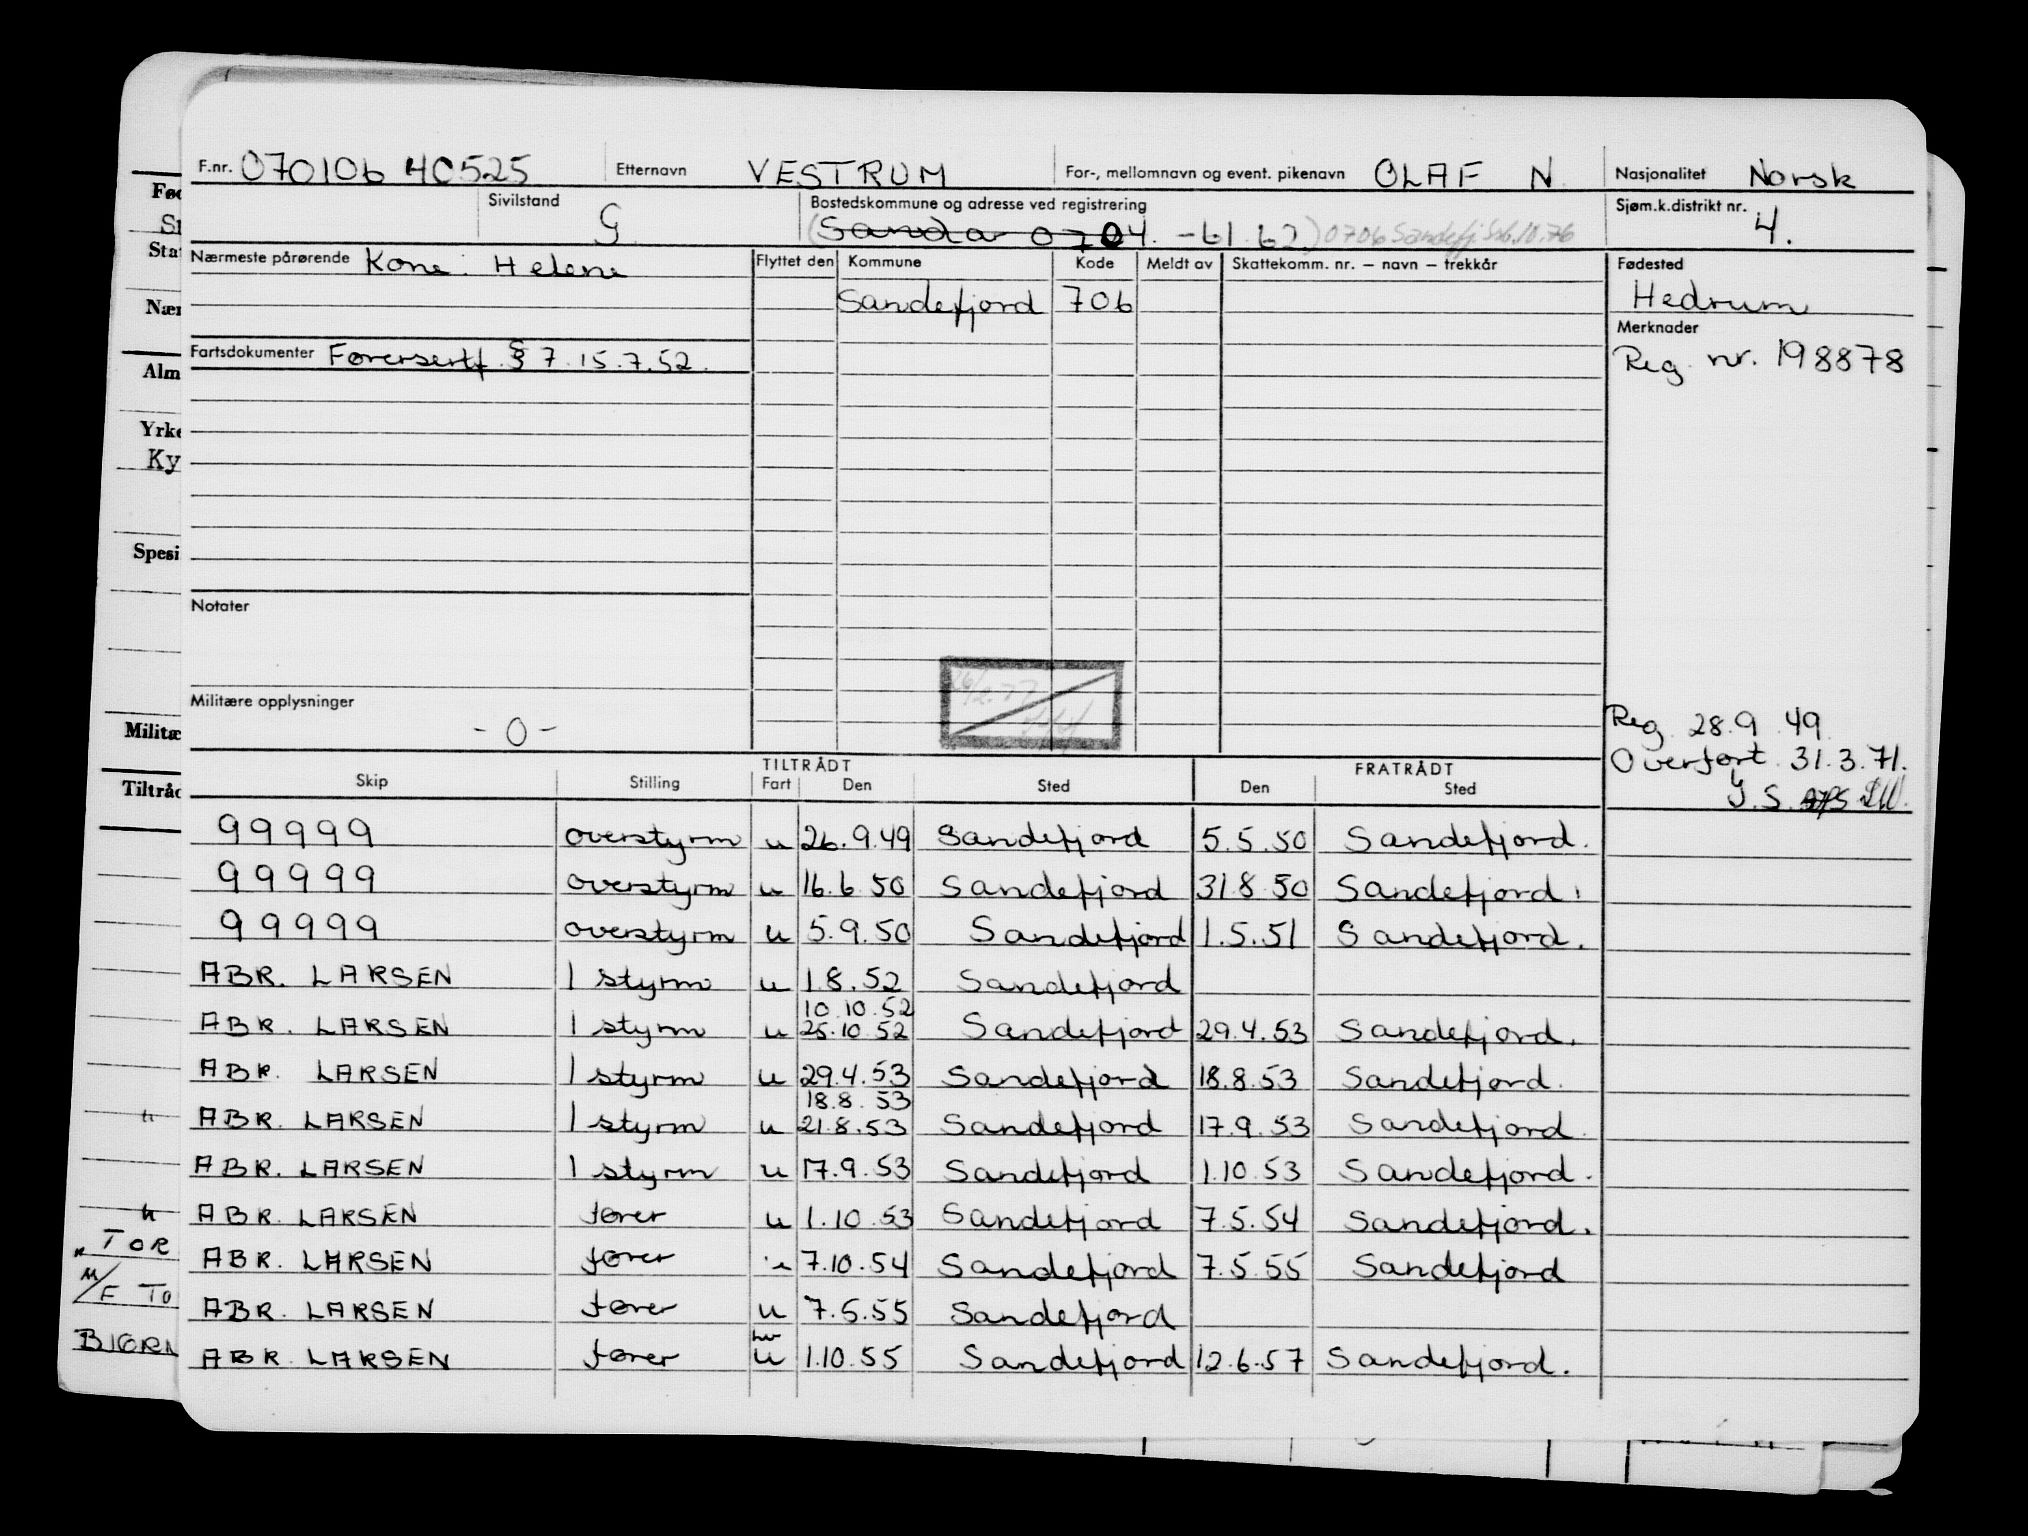 F.nr. 070106 40525 Etternavn VESTRUM For-, mellomnavn og event. pikenavn OLAF N Nasjonalitet Norsk
Sivilstand G Bostedskommune og adresse ved registrering Sjøm.k.distrikt nr. 4.
(Sandar 0704. - 61.62) 0706 Sandefj.
Nærmeste pårørende Kone: Helene Flyttet den Kommune Kode Meldt av Skattekomm. nr. – navn – trekkår Fødested
Sandefjord 706 Hedrum
Merknader
Fartsdokumenter Førersertf. § 7. 15.7.52. Reg. nr. 198878
Notater
Militære opplysninger
- 0 -
Reg. 28.9.49.
Overført 31.3.71.
TILTRÅDT FRATRÅDT
Skip Stilling Fart Den Sted Den Sted
99999 overstyrm u 26.9.49 Sandefjord 5.5.50 Sandefjord.
99999 overstyrm u 16.6.50 Sandefjord 31.8.50 Sandefjord.
99999 overstyrm u 5.9.50 Sandefjord 1.5.51 Sandefjord.
ABR. LARSEN 1 styrm u 1.8.52 Sandefjord
10.10.52
ABR. LARSEN 1 styrm u 25.10.52 Sandefjord 29.4.53 Sandefjord.
ABR. LARSEN 1 styrm u 29.4.53 Sandefjord 18.8.53 Sandefjord.
18.8.53
ABR. LARSEN 1 styrm u 21.8.53 Sandefjord 17.9.53 Sandefjord.
ABR. LARSEN 1 styrm u 17.9.53 Sandefjord 1.10.53 Sandefjord.
ABR. LARSEN fører u 1.10.53 Sandefjord 7.5.54 Sandefjord.
ABR. LARSEN fører u 7.10.54 Sandefjord 7.5.55 Sandefjord
ABR. LARSEN fører u 7.5.55 Sandefjord
ABR. LARSEN fører u 1.10.55 Sandefjord 12.6.57 Sandefjord.
Fød
Stat
Nær
Alm
Yrke
Ky
Spesi
Militæ
Tiltråd
TOR
M/F TO
BJØRN